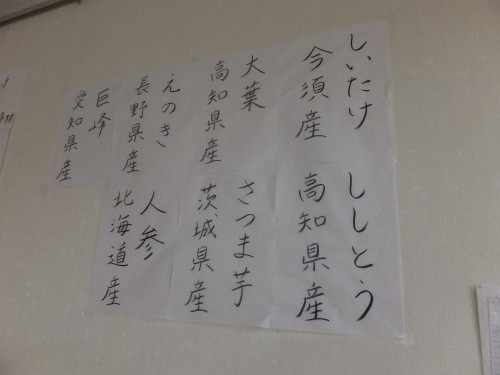 しいたけ
今須産
大葉
高知県産
えのき
長野県産
巨峰
愛知県産
ししとう
高知県産
さつま芋
茨城県産
人参
北海道産